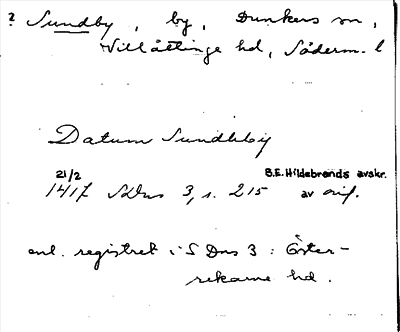 ? Sundby, by, Dunkers sn,
Villåttinge hd, Söderm. l
Datum Sundhby
21/2 B.E. Hildebrands avskr.
1417 SDns 3, s. 215 av orig.
enl. registret i SDns 3: Öster-
rekarne hd.